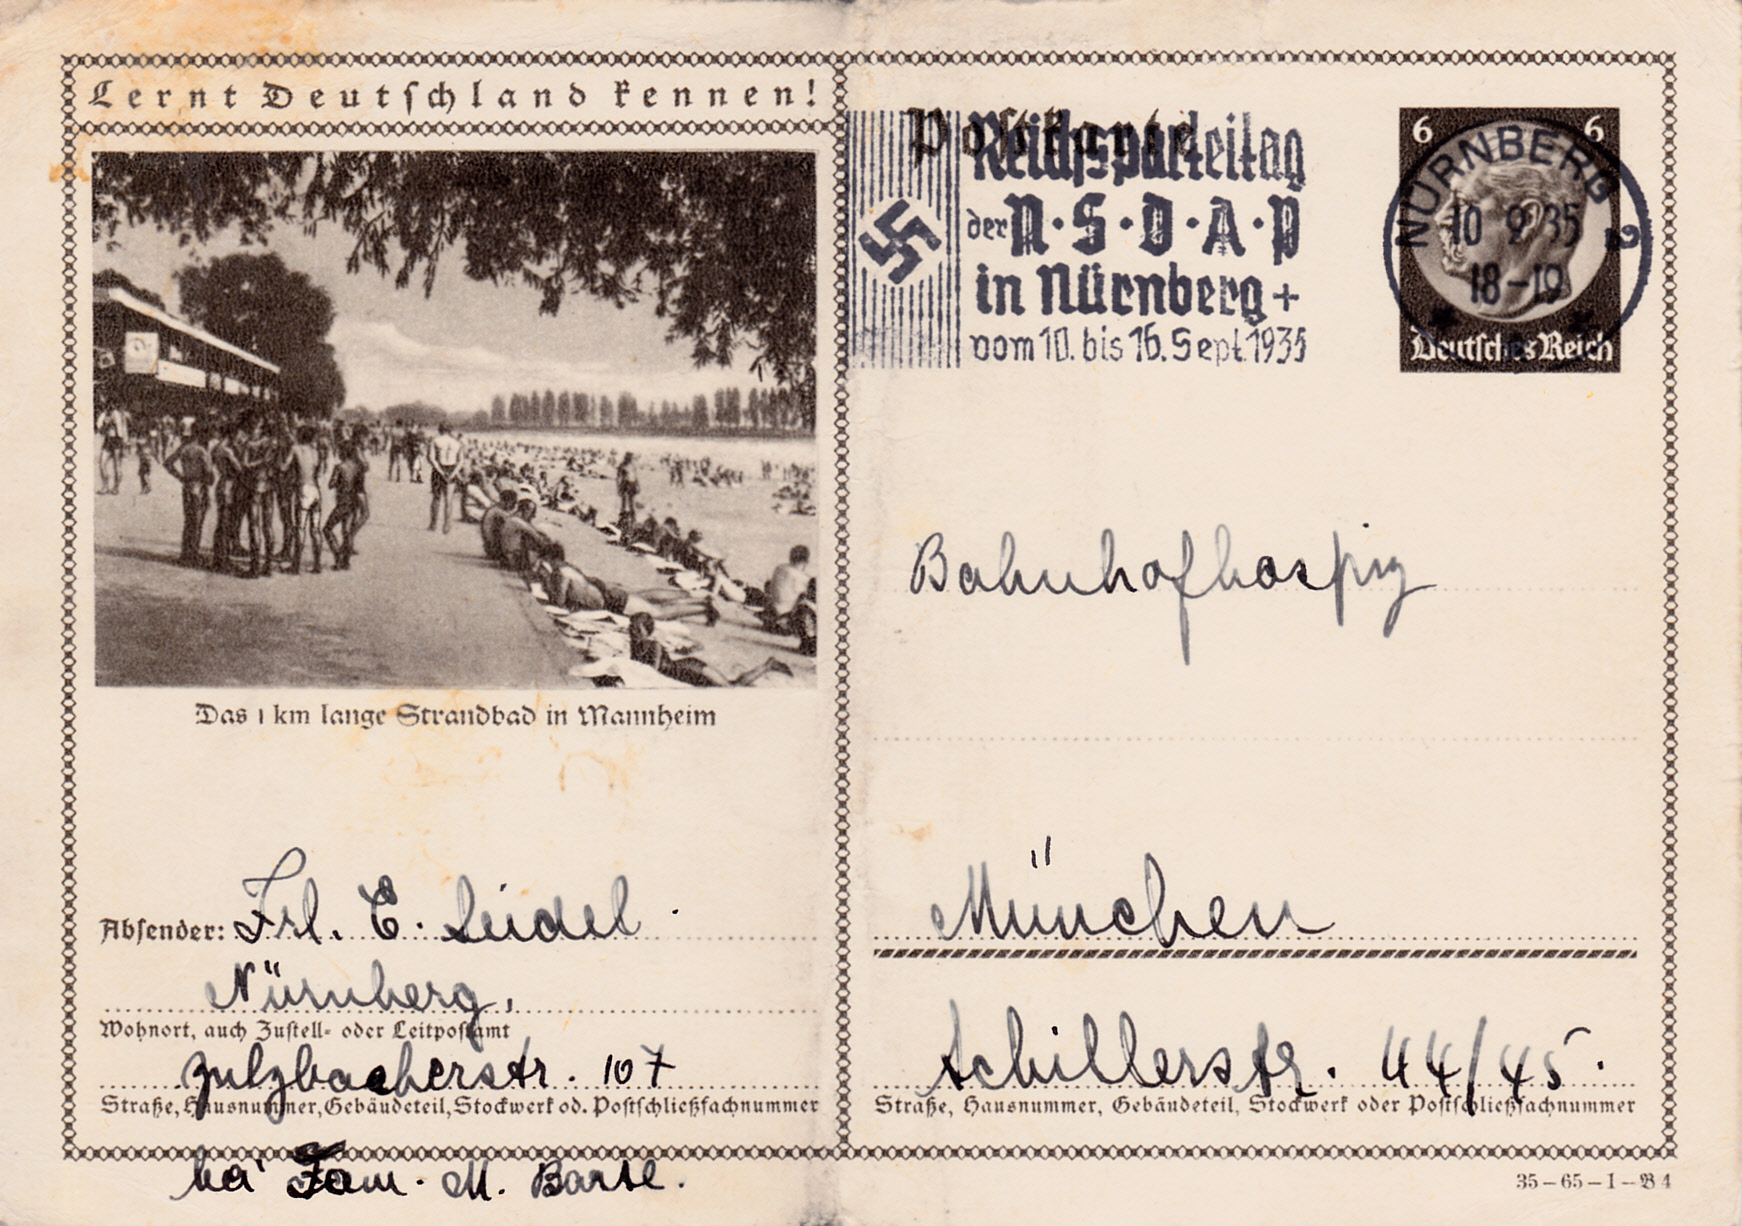 Lernt Deutschland kennen!
Das 1 km lange Strandbad in Mannheim
Absender: Frl. E. Seidel.
Nürnberg,
Wohnort, auch Zustell- oder Leitpostamt
Zulzbacherstr. 107
Straße, Hausnummer, Gebäudeteil, Stockwerk od. Postschließfachnummer
bei Fam. M. Bartl.
Postkarte
Reichsparteitag
der N·S·D·A·P
in Nürnberg +
vom 10. bis 16. Sept. 1935
6 6
NÜRNBERG 2
10 9 35
18-19
Deutsches Reich
Bahnhofhospiz
München
Schillerstr. 44/45.
Straße, Hausnummer, Gebäudeteil, Stockwerk oder Postschließfachnummer
35-65-1-B4